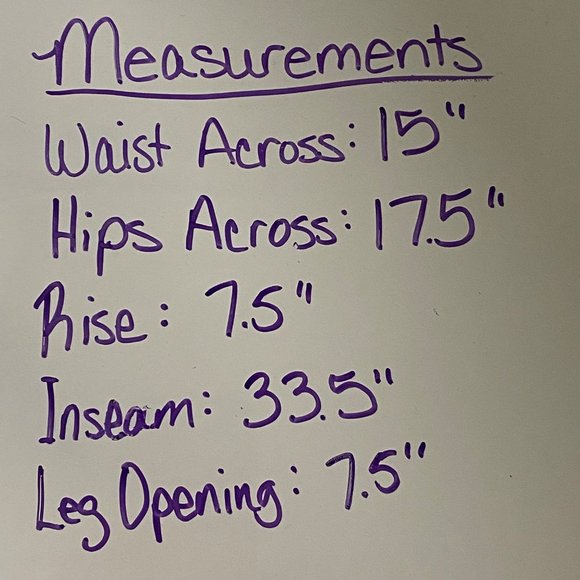 Measurements
Waist Across: 15"
Hips Across: 17.5"
Rise: 7.5"
Inseam: 33.5"
Leg Opening: 7.5"